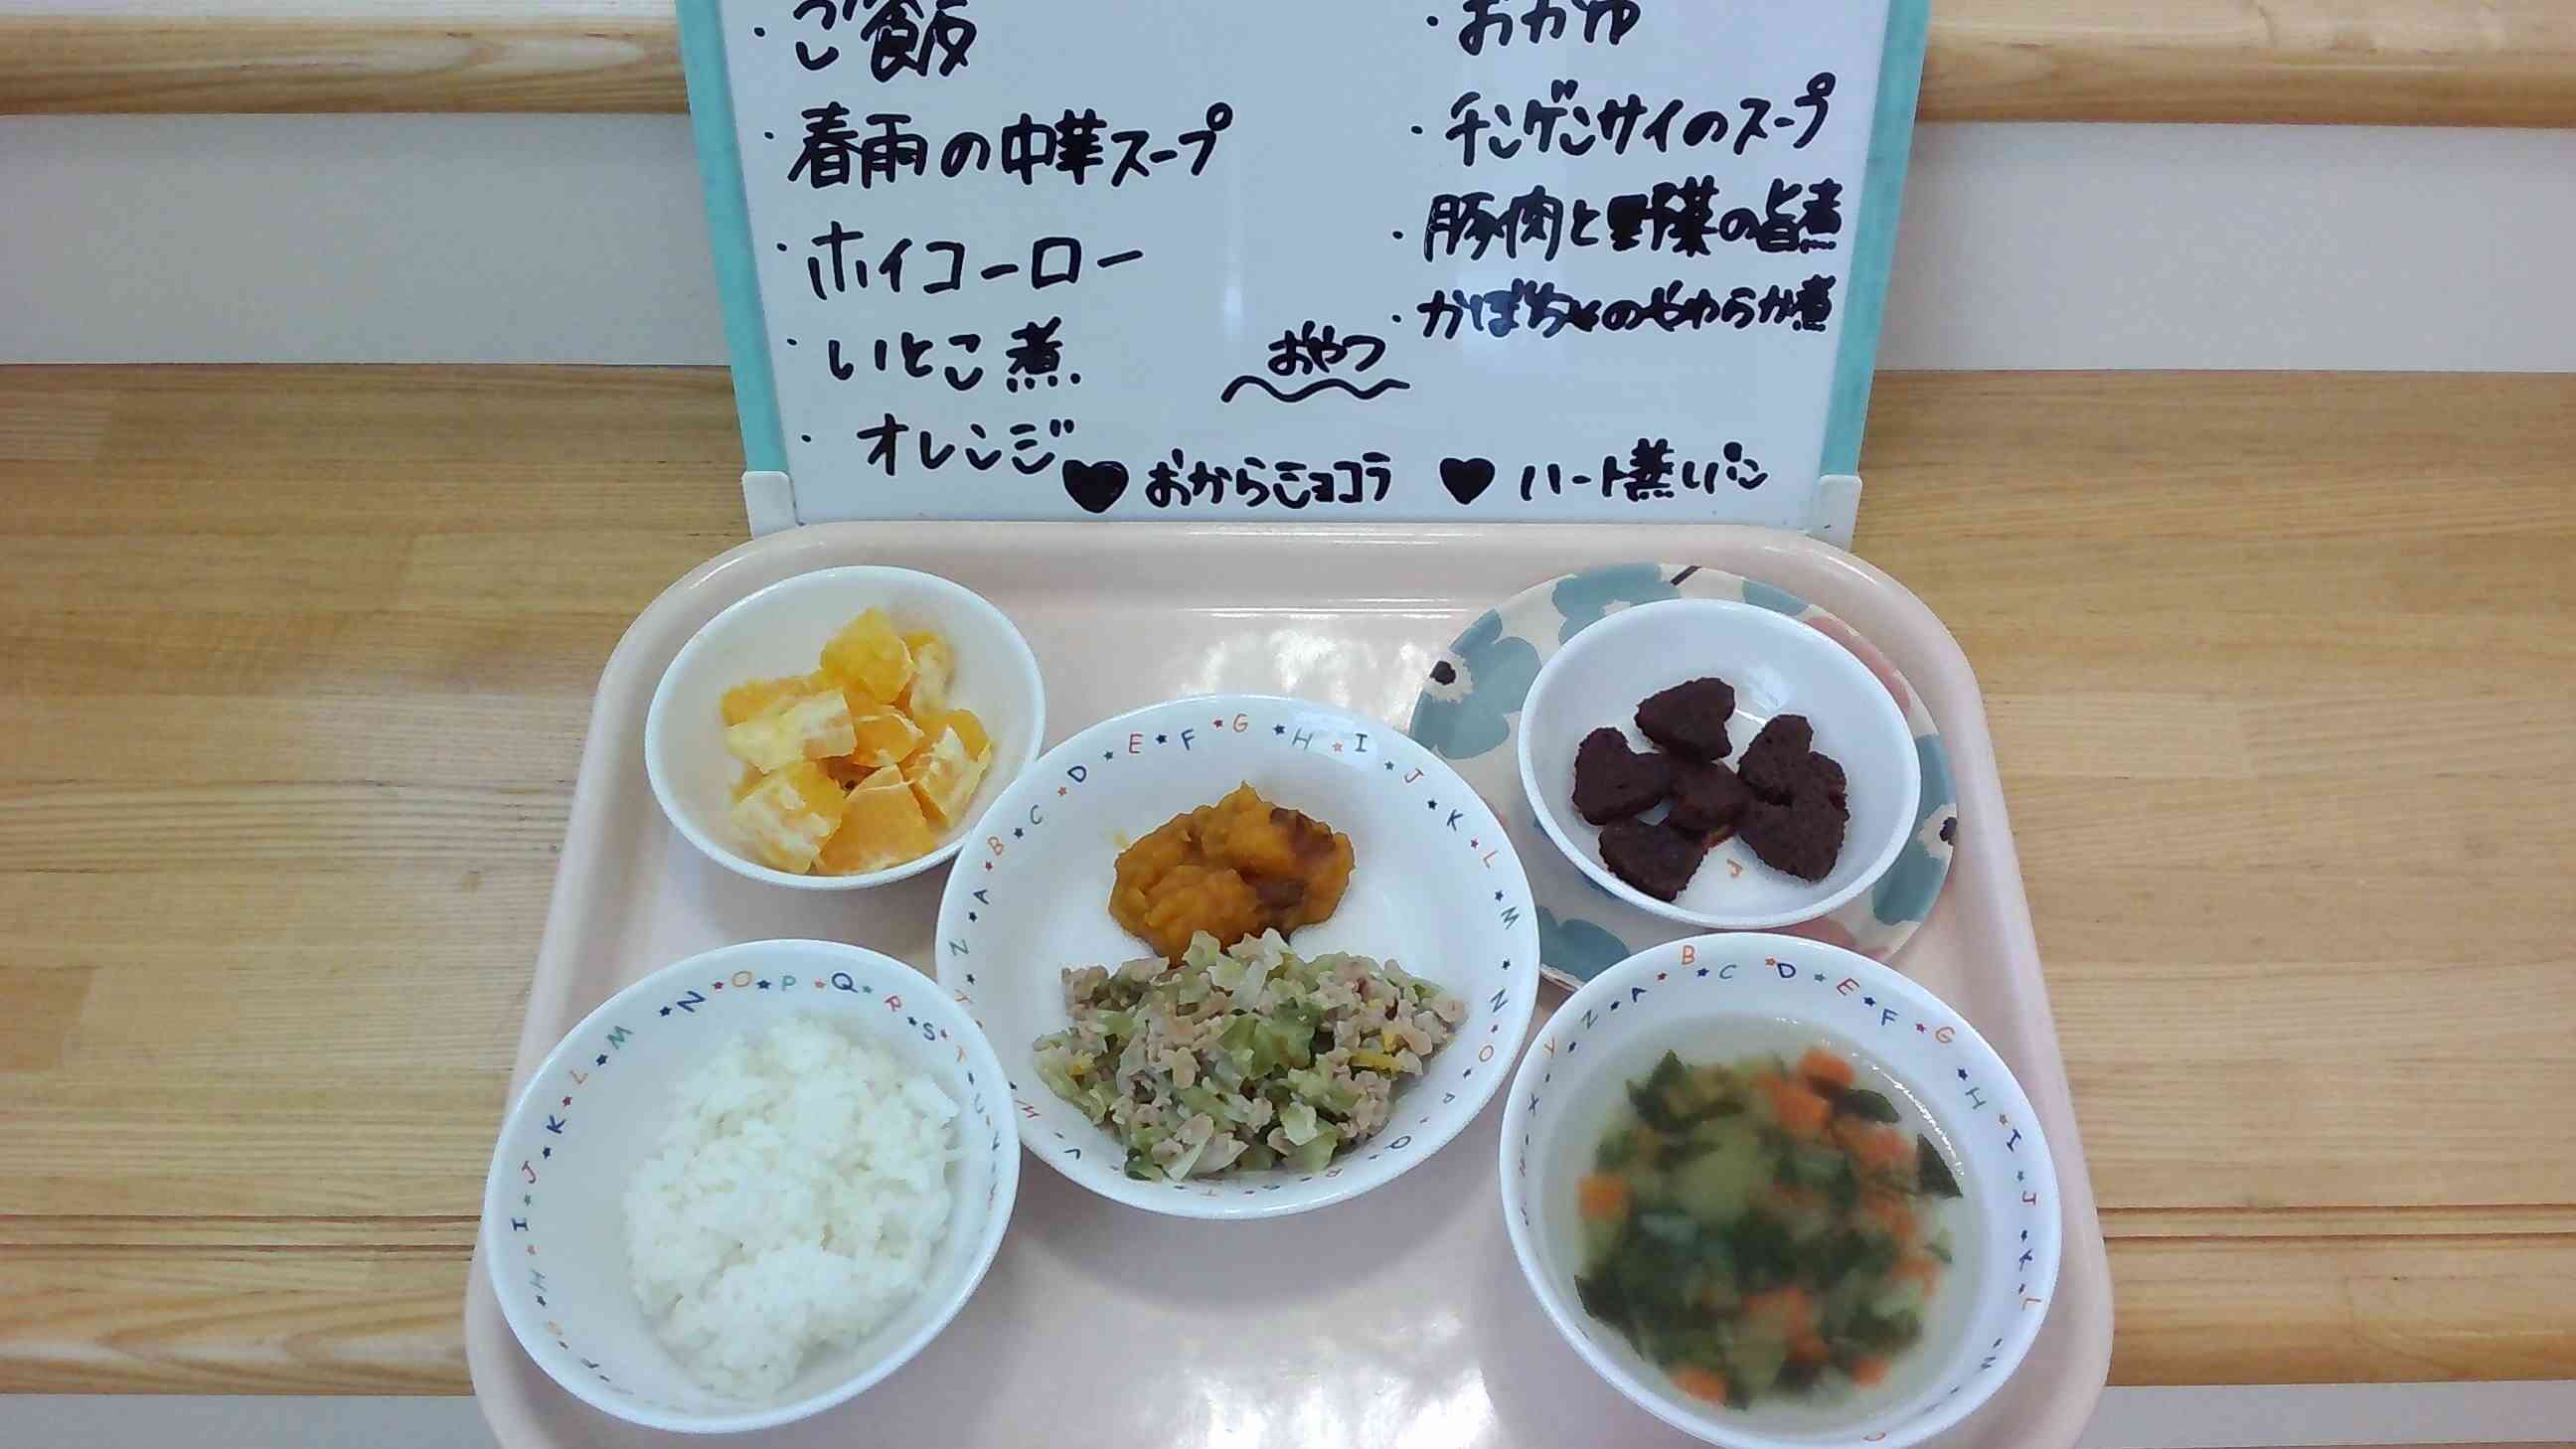 ・ご飯
・春雨の中華スープ
・ホイコーロー
・いとこ煮
・オレンジ
・おかゆ
・チンゲンサイのスープ
・豚肉と野菜の旨煮
・かぼちゃのやわらか煮
おやつ
♥おからショコラ ♥ハート蒸しパン
A B C D E F G H I J K L M N O P Q R S T V W Z
F G H I J K L M N O P Q R S T U
X Y Z A B C D E F G H I J K L M